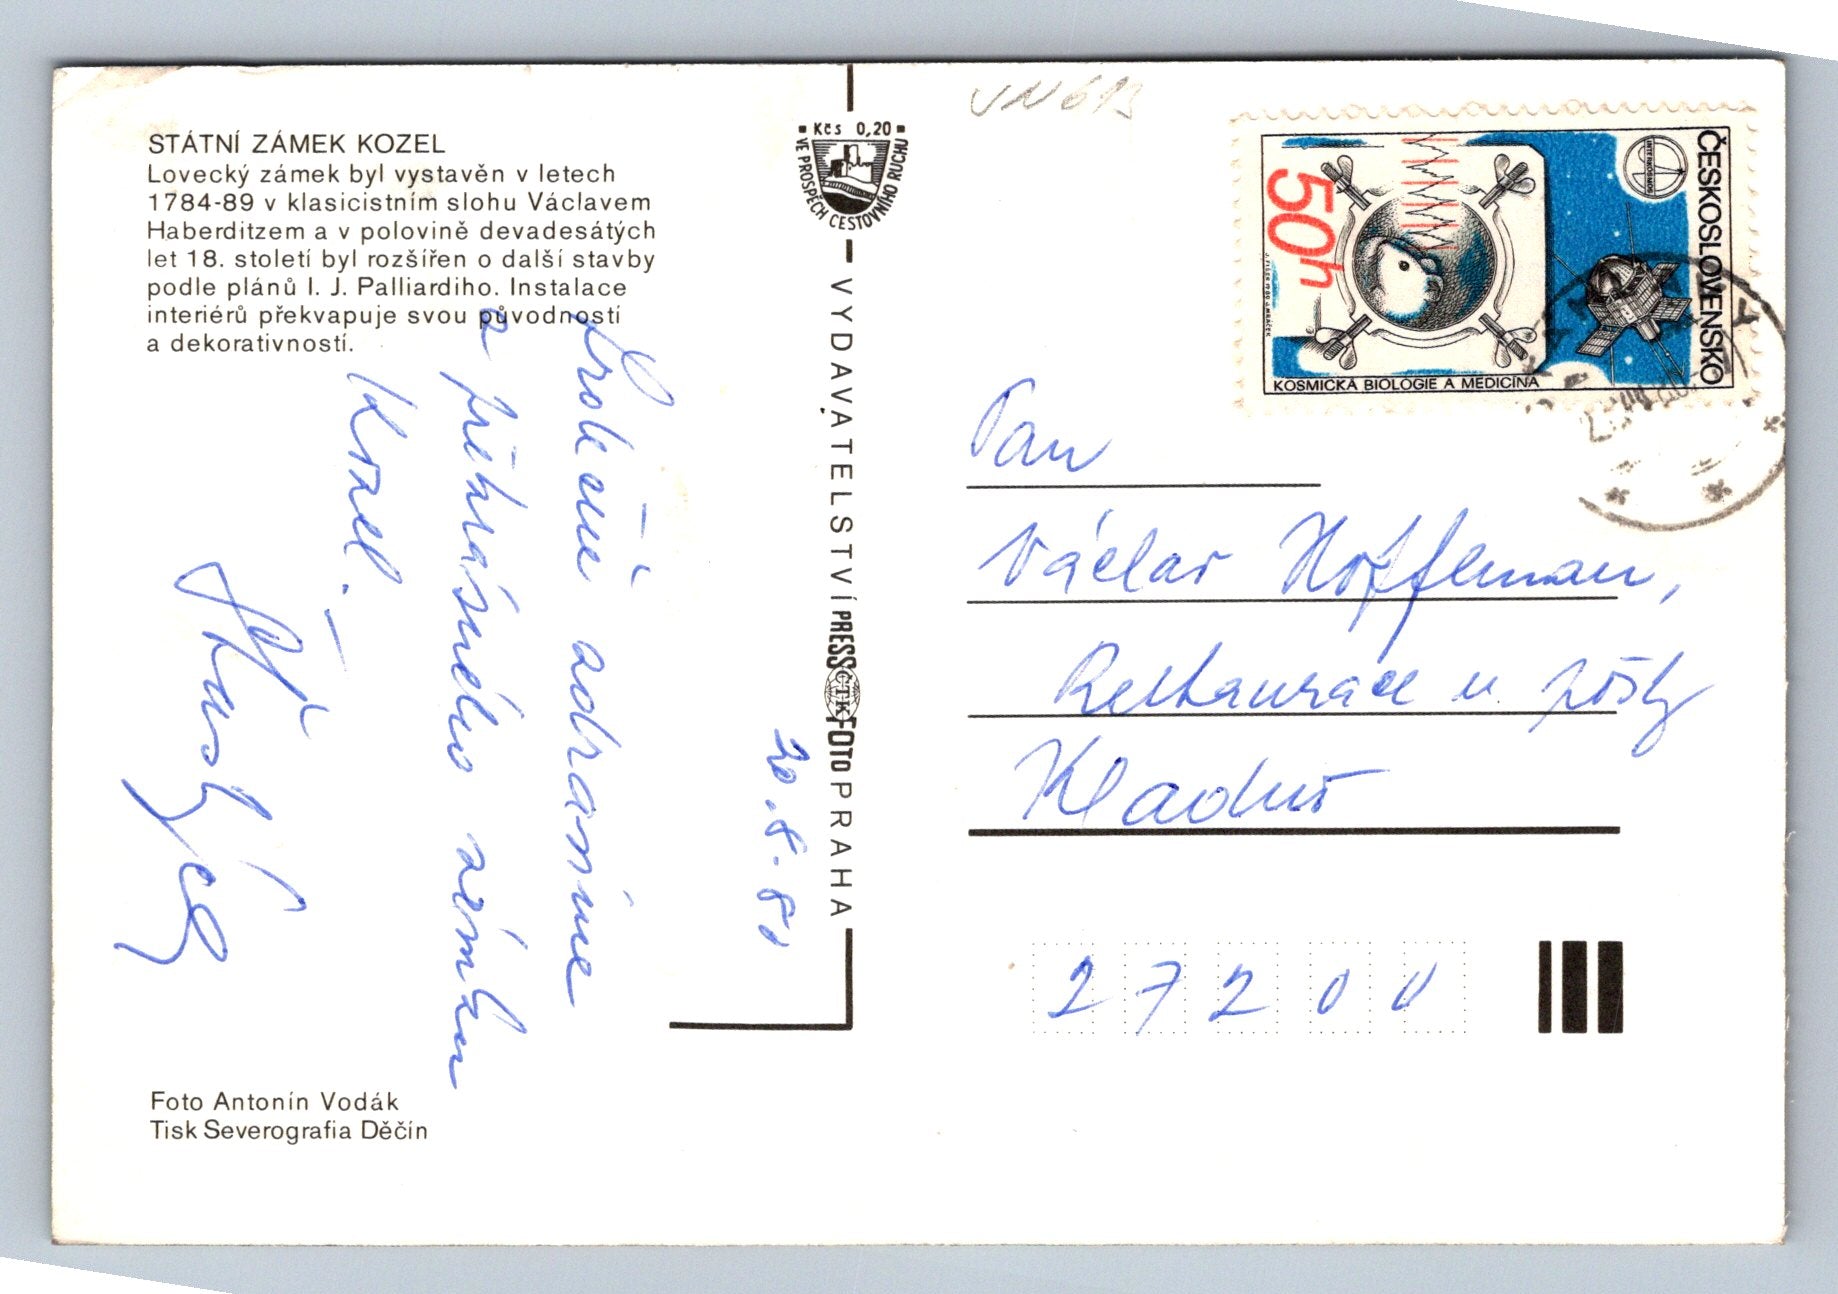 STÁTNÍ ZÁMEK KOZEL
Lovecký zámek byl vystavěn v letech
1784-89 v klasicistním slohu Václavem
Haberditzem a v polovině devadesátých
let 18. století byl rozšířen o další stavby
podle plánů I. J. Palliardiho. Instalace
interiérů překvapuje svou původností
a dekorativností.
Srdečně zdravíme
a překrásného zámku
Kozel. –
20.8.80
Foto Antonín Vodák
Tisk Severografia Děčín
Kčs 0,20
VE PROSPĚCH CESTOVNÍHO RUCHU
VYDAVATELSTVÍ PRESSFOTO PRAHA
ČTK
ČESKOSLOVENSKO
INTERKOSMOS
50h
KOSMICKÁ BIOLOGIE A MEDICÍNA
Pan
Václav Hoffman,
Restaurace u pošty
Kladno
27200